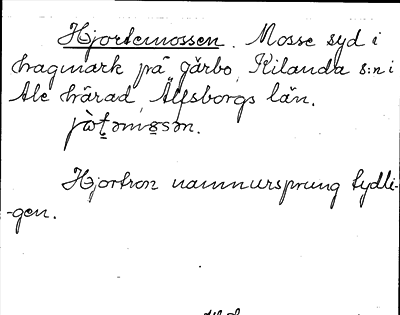 Hjortemossen. Mosse syd i
hagmark på gärbo, Kilanda s:n i
Ale härad, Älfsborgs län.
jò̀t̠əmo̠sən.
Hjortron namnursprung tydli-
-gen.